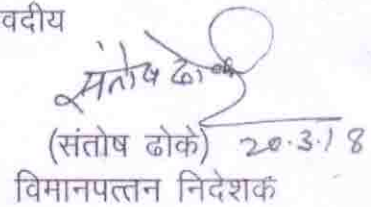 वदीय
संतोष ढोके
(संतोष ढोके) 20.3.18
विमानपत्तन निदेशक